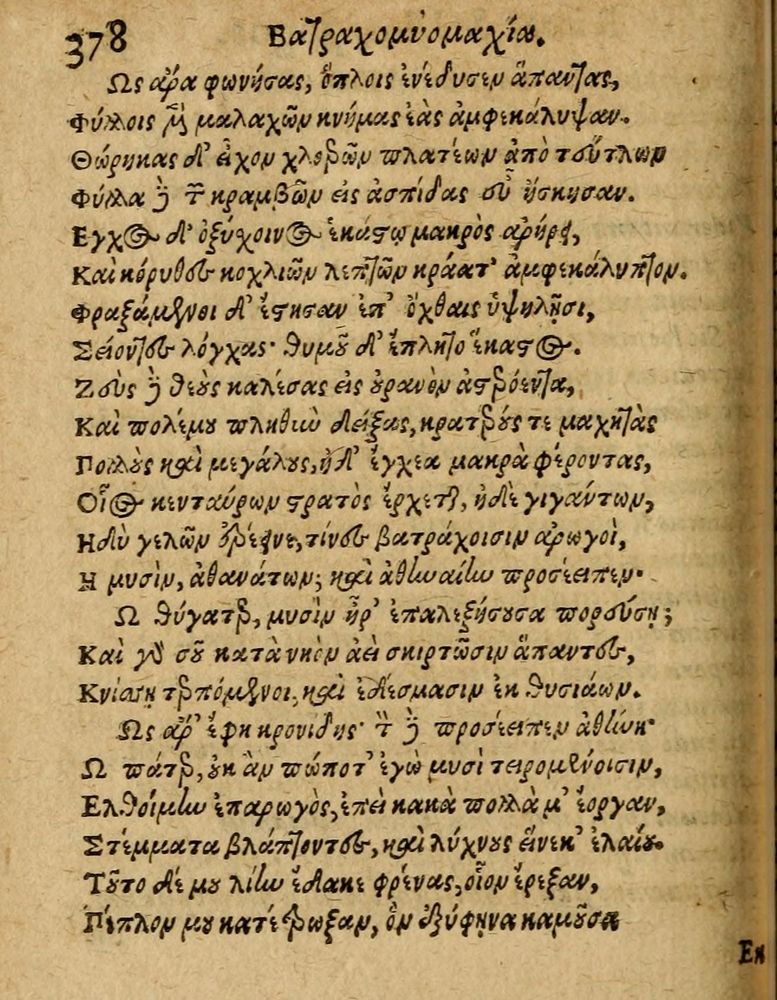 378 Βατραχομυομαχία.
Ως ἄρα φωνήσας, ὅπλοις ἐνέδυσεν ἅπαντας,
Φύλλοις μὲν μαλαχῶν κνήμας ἑὰς ἀμφεκάλυψαν.
Θώρηκας δ' εἶχον χλοερῶν πλατέων ἀπὸ τεύτλων
Φύλλα δὲ τῶν κραμβῶν εἰς ἀσπίδας εὖ ἤσκησαν.
Εγχος δ' ὀξύχοινος ἑκάστῳ μακρὸς ἀρήρει,
Καὶ κόρυθες κοχλιῶν λεπτῶν κράατ' ἀμφεκάλυπτον.
Φραξάμενοι δ' ἔστησαν ἐπ' ὄχθαις ὑψηλῇσι,
Σείοντες λόγχας· θυμοῦ δ' ἔπλητο ἕκαστος.
Ζεὺς δὲ θεοὺς καλέσας εἰς οὐρανὸν ἀστερόεντα,
Καὶ πολέμου πληθὺν δείξας, κρατερούς τε μαχητὰς
Πολλοὺς καὶ μεγάλους, ἠδ' ἔγχεα μακρὰ φέροντας,
Οἷος κενταύρων στρατὸς ἔρχεται, ἠδὲ γιγάντων,
Ηδὺ γελῶν ἐρέεινε, τίνες βατράχοισιν ἀρωγοὶ,
Η μυσὶν, ἀθανάτων; καὶ ἀθηναίην προσέειπεν·
Ω θύγατερ, μυσὶν ἦρ' ἐπαλεξήσουσα πορεύσῃ;
Καὶ γὰρ σοῦ κατὰ νηὸν ἀεὶ σκιρτῶσιν ἅπαντες,
Κνίσσῃ τερπόμενοι, καὶ ἐδέσμασιν ἐκ θυσιάων.
Ως ἄρ' ἔφη κρονίδης· τὸν δὲ προσέειπεν ἀθήνη·
Ω πάτερ, οὐκ ἂν πώποτ' ἐγὼ μυσὶ τειρομένοισιν,
Ελθοίμην ἐπαρωγὸς, ἐπεὶ κακὰ πολλὰ μ' ἔοργαν,
Στέμματα βλάπτοντες, καὶ λύχνους εἵνεκ' ἐλαίου.
Τοῦτο δέ μου λίην ἔδακε φρένας, οἷον ἔρεξαν,
Πέπλον μου κατέτρωξαν, ὃν ἐξύφηνα καμοῦσα
Εκ